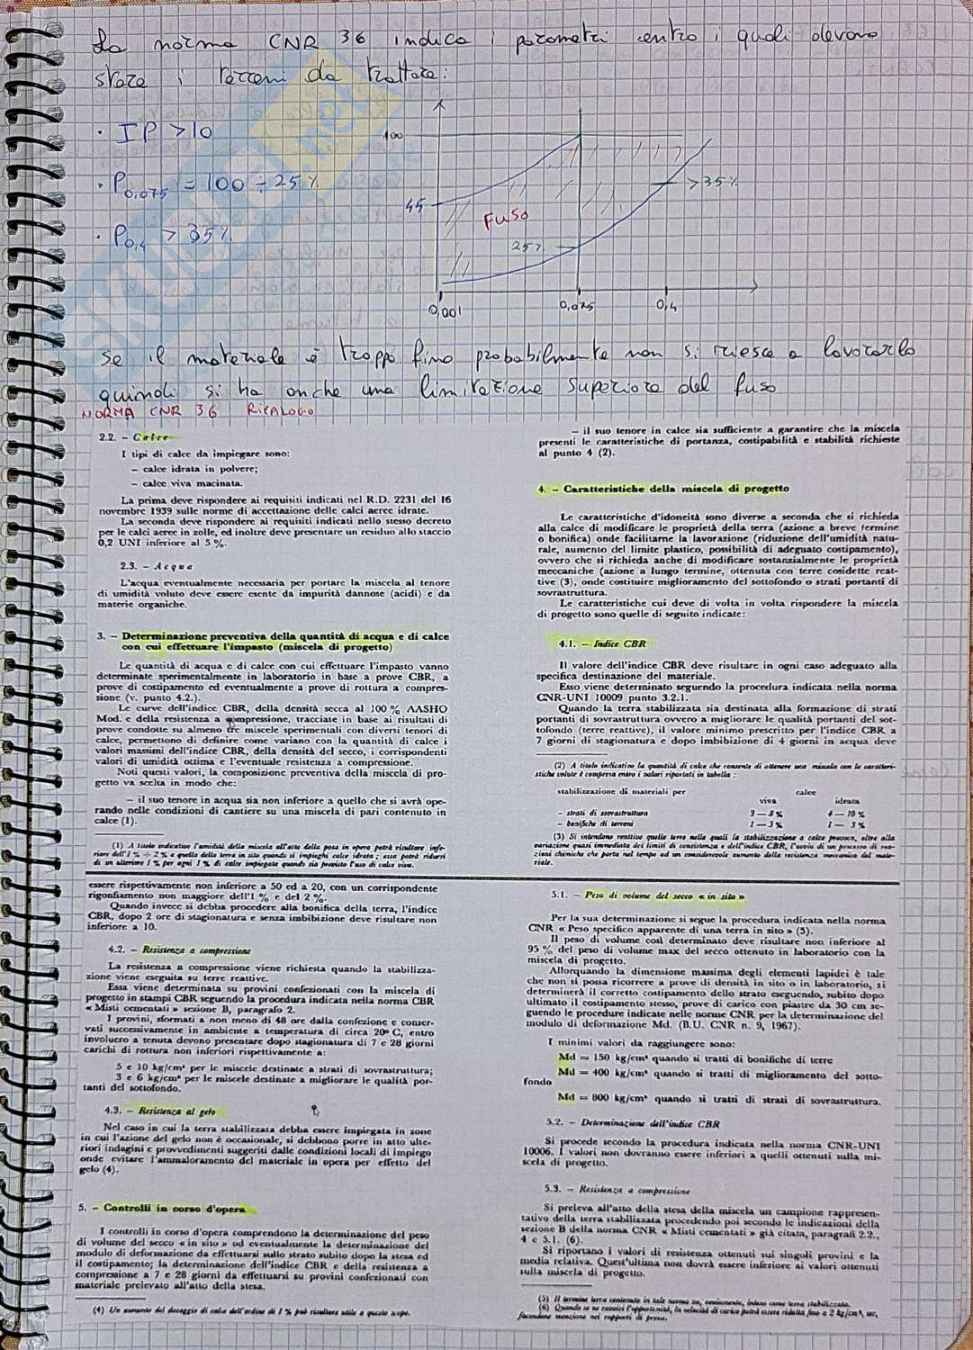 La norma CNR 36 indica i parametri entro i quali devono
stare i terreni da trattare:
· IP > 10
· P0,075 = 100 ÷ 25%
· P0,4 > 35%
100
45
FUSO
25%
>35%
0,001
0,075
0,4
se il materiale è troppo fino probabilmente non si riesce a lavorarlo
quindi si ha anche una limitazione superiore del fuso
NORMA CNR 36 RIEPILOGO
SKUOLA.net
2.2. – Calce
I tipi di calce da impiegare sono:
– calce idrata in polvere;
– calce viva macinata.
La prima deve rispondere ai requisiti indicati nel R.D. 2231 del 16
novembre 1939 sulle norme di accettazione delle calci aeree idrate.
La seconda deve rispondere ai requisiti indicati nello stesso decreto
per le calci aeree in zolle, ed inoltre deve presentare un residuo allo staccio
0,2 UNI inferiore al 5 %.
2.3. – Acqua
L'acqua eventualmente necessaria per portare la miscela al tenore
di umidità voluto deve essere esente da impurità dannose (acidi) e da
materie organiche.
3. – Determinazione preventiva della quantità di acqua e di calce
con cui effettuare l'impasto (miscela di progetto)
Le quantità di acqua e di calce con cui effettuare l'impasto vanno
determinate sperimentalmente in laboratorio in base a prove CBR, a
prove di costipamento ed eventualmente a prove di rottura a compres-
sione (v. punto 4.2.).
Le curve dell'indice CBR, della densità secca al 100 % AASHO
Mod. e della resistenza a compressione, tracciate in base ai risultati di
prove condotte su almeno tre miscele sperimentali con diversi tenori di
calce, permettono di definire come variano con la quantità di calce i
valori massimi dell'indice CBR, della densità del secco, i corrispondenti
valori di umidità ottima e l'eventuale resistenza a compressione.
Noti questi valori, la composizione preventiva della miscela di pro-
getto va scelta in modo che:
– il suo tenore in acqua sia non inferiore a quello che si avrà ope-
rando nelle condizioni di cantiere su una miscela di pari contenuto in
calce (1).
(1) A titolo indicativo l'umidità della miscela all'atto della posa in opera potrà risultare infe-
riore dell'1 % ÷ 2 % a quella della terra in sito quando si impieghi calce idrata; essa potrà ridursi
di un ulteriore 1 % per ogni 1 % di calce impiegata quando sia previsto l'uso di calce viva.
– il suo tenore in calce sia sufficiente a garantire che la miscela
presenti le caratteristiche di portanza, costipabilità e stabilità richieste
al punto 4 (2).
4. – Caratteristiche della miscela di progetto
Le caratteristiche d'idoneità sono diverse a seconda che si richieda
alla calce di modificare le proprietà della terra (azione a breve termine
o bonifica) onde facilitarne la lavorazione (riduzione dell'umidità natu-
rale, aumento del limite plastico, possibilità di adeguato costipamento),
ovvero che si richieda anche di modificare sostanzialmente le proprietà
meccaniche (azione a lungo termine, ottenuta con terre cosidette reat-
tive (3), onde costituire miglioramento del sottofondo o strati portanti di
sovrastruttura.
Le caratteristiche cui deve di volta in volta rispondere la miscela
di progetto sono quelle di seguito indicate:
4.1. – Indice CBR
Il valore dell'indice CBR deve risultare in ogni caso adeguato alla
specifica destinazione del materiale.
Esso viene determinato seguendo la procedura indicata nella norma
CNR-UNI 10009 punto 3.2.1.
Quando la terra stabilizzata sia destinata alla formazione di strati
portanti di sovrastruttura ovvero a migliorare le qualità portanti del sot-
tofondo (terre reattive), il valore minimo prescritto per l'indice CBR a
7 giorni di stagionatura e dopo imbibizione di 4 giorni in acqua deve
(2) A titolo indicativo la quantità di calce che consente di ottenere una miscela con le caratteri-
stiche volute è compresa entro i valori riportati in tabella:
stabilizzazione di materiali per calce
viva idrata
– strati di sovrastruttura 3 – 8 % 4 – 10 %
– bonifiche di terreni 1 – 3 % 1 – 3 %
(3) Si intendono reattive quelle terre nelle quali la stabilizzazione a calce provoca, oltre alla
variazione quasi immediata dei limiti di consistenza e dell'indice CBR, l'avvio di un processo di rea-
zioni chimiche che porta nel tempo ad un considerevole aumento della resistenza meccanica del mate-
riale.
essere rispettivamente non inferiore a 50 ed a 20, con un corrispondente
rigonfiamento non maggiore dell'1 % e del 2 %.
Quando invece si debba procedere alla bonifica della terra, l'indice
CBR, dopo 2 ore di stagionatura e senza imbibizione deve risultare non
inferiore a 10.
4.2. – Resistenza a compressione
La resistenza a compressione viene richiesta quando la stabilizza-
zione viene eseguita su terre reattive.
Essa viene determinata su provini confezionati con la miscela di
progetto in stampi CBR seguendo la procedura indicata nella norma CBR
« Misti cementati » sezione B, paragrafo 2.
I provini, sformati a non meno di 48 ore dalla confezione e conser-
vati successivamente in ambiente a temperatura di circa 20° C, entro
involucro a tenuta devono presentare dopo stagionatura di 7 e 28 giorni
carichi di rottura non inferiori rispettivamente a:
5 e 10 kg/cm² per le miscele destinate a strati di sovrastruttura;
3 e 6 kg/cm² per le miscele destinate a migliorare le qualità por-
tanti del sottofondo.
4.3. – Resistenza al gelo
Nel caso in cui la terra stabilizzata debba essere impiegata in zone
in cui l'azione del gelo non è occasionale, si debbono porre in atto ulte-
riori indagini e provvedimenti suggeriti dalle condizioni locali di impiego
onde evitare l'ammaloramento del materiale in opera per effetto del
gelo (4).
5. – Controlli in corso d'opera
I controlli in corso d'opera comprendono la determinazione del peso
di volume del secco « in sito » ed eventualmente la determinazione del
modulo di deformazione da effettuarsi sullo strato subito dopo la stesa ed
il costipamento; la determinazione dell'indice CBR e della resistenza a
compressione a 7 e 28 giorni da effettuarsi su provini confezionati con
materiale prelevato all'atto della stesa.
(4) Un aumento del dosaggio di calce dell'ordine di 1 % può risultare utile a questo scopo.
5.1. – Peso di volume del secco « in sito »
Per la sua determinazione si segue la procedura indicata nella norma
CNR « Peso specifico apparente di una terra in sito » (5).
Il peso di volume così determinato deve risultare non inferiore al
95 % del peso di volume max del secco ottenuto in laboratorio con la
miscela di progetto.
Allorquando la dimensione massima degli elementi lapidei è tale
che non si possa ricorrere a prove di densità in sito o in laboratorio, si
determinerà il corretto costipamento dello strato eseguendo, subito dopo
ultimato il costipamento stesso, prove di carico con piastre da 30 cm se-
guendo le procedure indicate nelle norme CNR per la determinazione del
modulo di deformazione Md. (B.U. CNR n. 9, 1967).
I minimi valori da raggiungere sono:
Md = 150 kg/cm² quando si tratti di bonifiche di terre
Md = 400 kg/cm² quando si tratti di miglioramento del sotto-
fondo
Md = 800 kg/cm² quando si tratti di strati di sovrastruttura.
5.2. – Determinazione dell'indice CBR
Si procede secondo la procedura indicata nella norma CNR-UNI
10006. I valori non dovranno essere inferiori a quelli ottenuti sulla mi-
scela di progetto.
5.3. – Resistenza a compressione
Si preleva all'atto della stesa della miscela un campione rappresen-
tativo della terra stabilizzata procedendo poi secondo le indicazioni della
sezione B della norma CNR « Misti cementati » già citata, paragrafi 2.2.,
4 e 5.1. (6).
Si riportano i valori di resistenza ottenuti sui singoli provini e la
media relativa. Quest'ultima non dovrà essere inferiore ai valori ottenuti
sulla miscela di progetto.
(5) Il termine terra contenuto in tale norma va, ovviamente, inteso come terra stabilizzata.
(6) Quando se ne ravvisi l'opportunità, la velocità di carico potrà essere ridotta fino a 2 kg/cm², sec,
facendone menzione nei rapporti di prova.